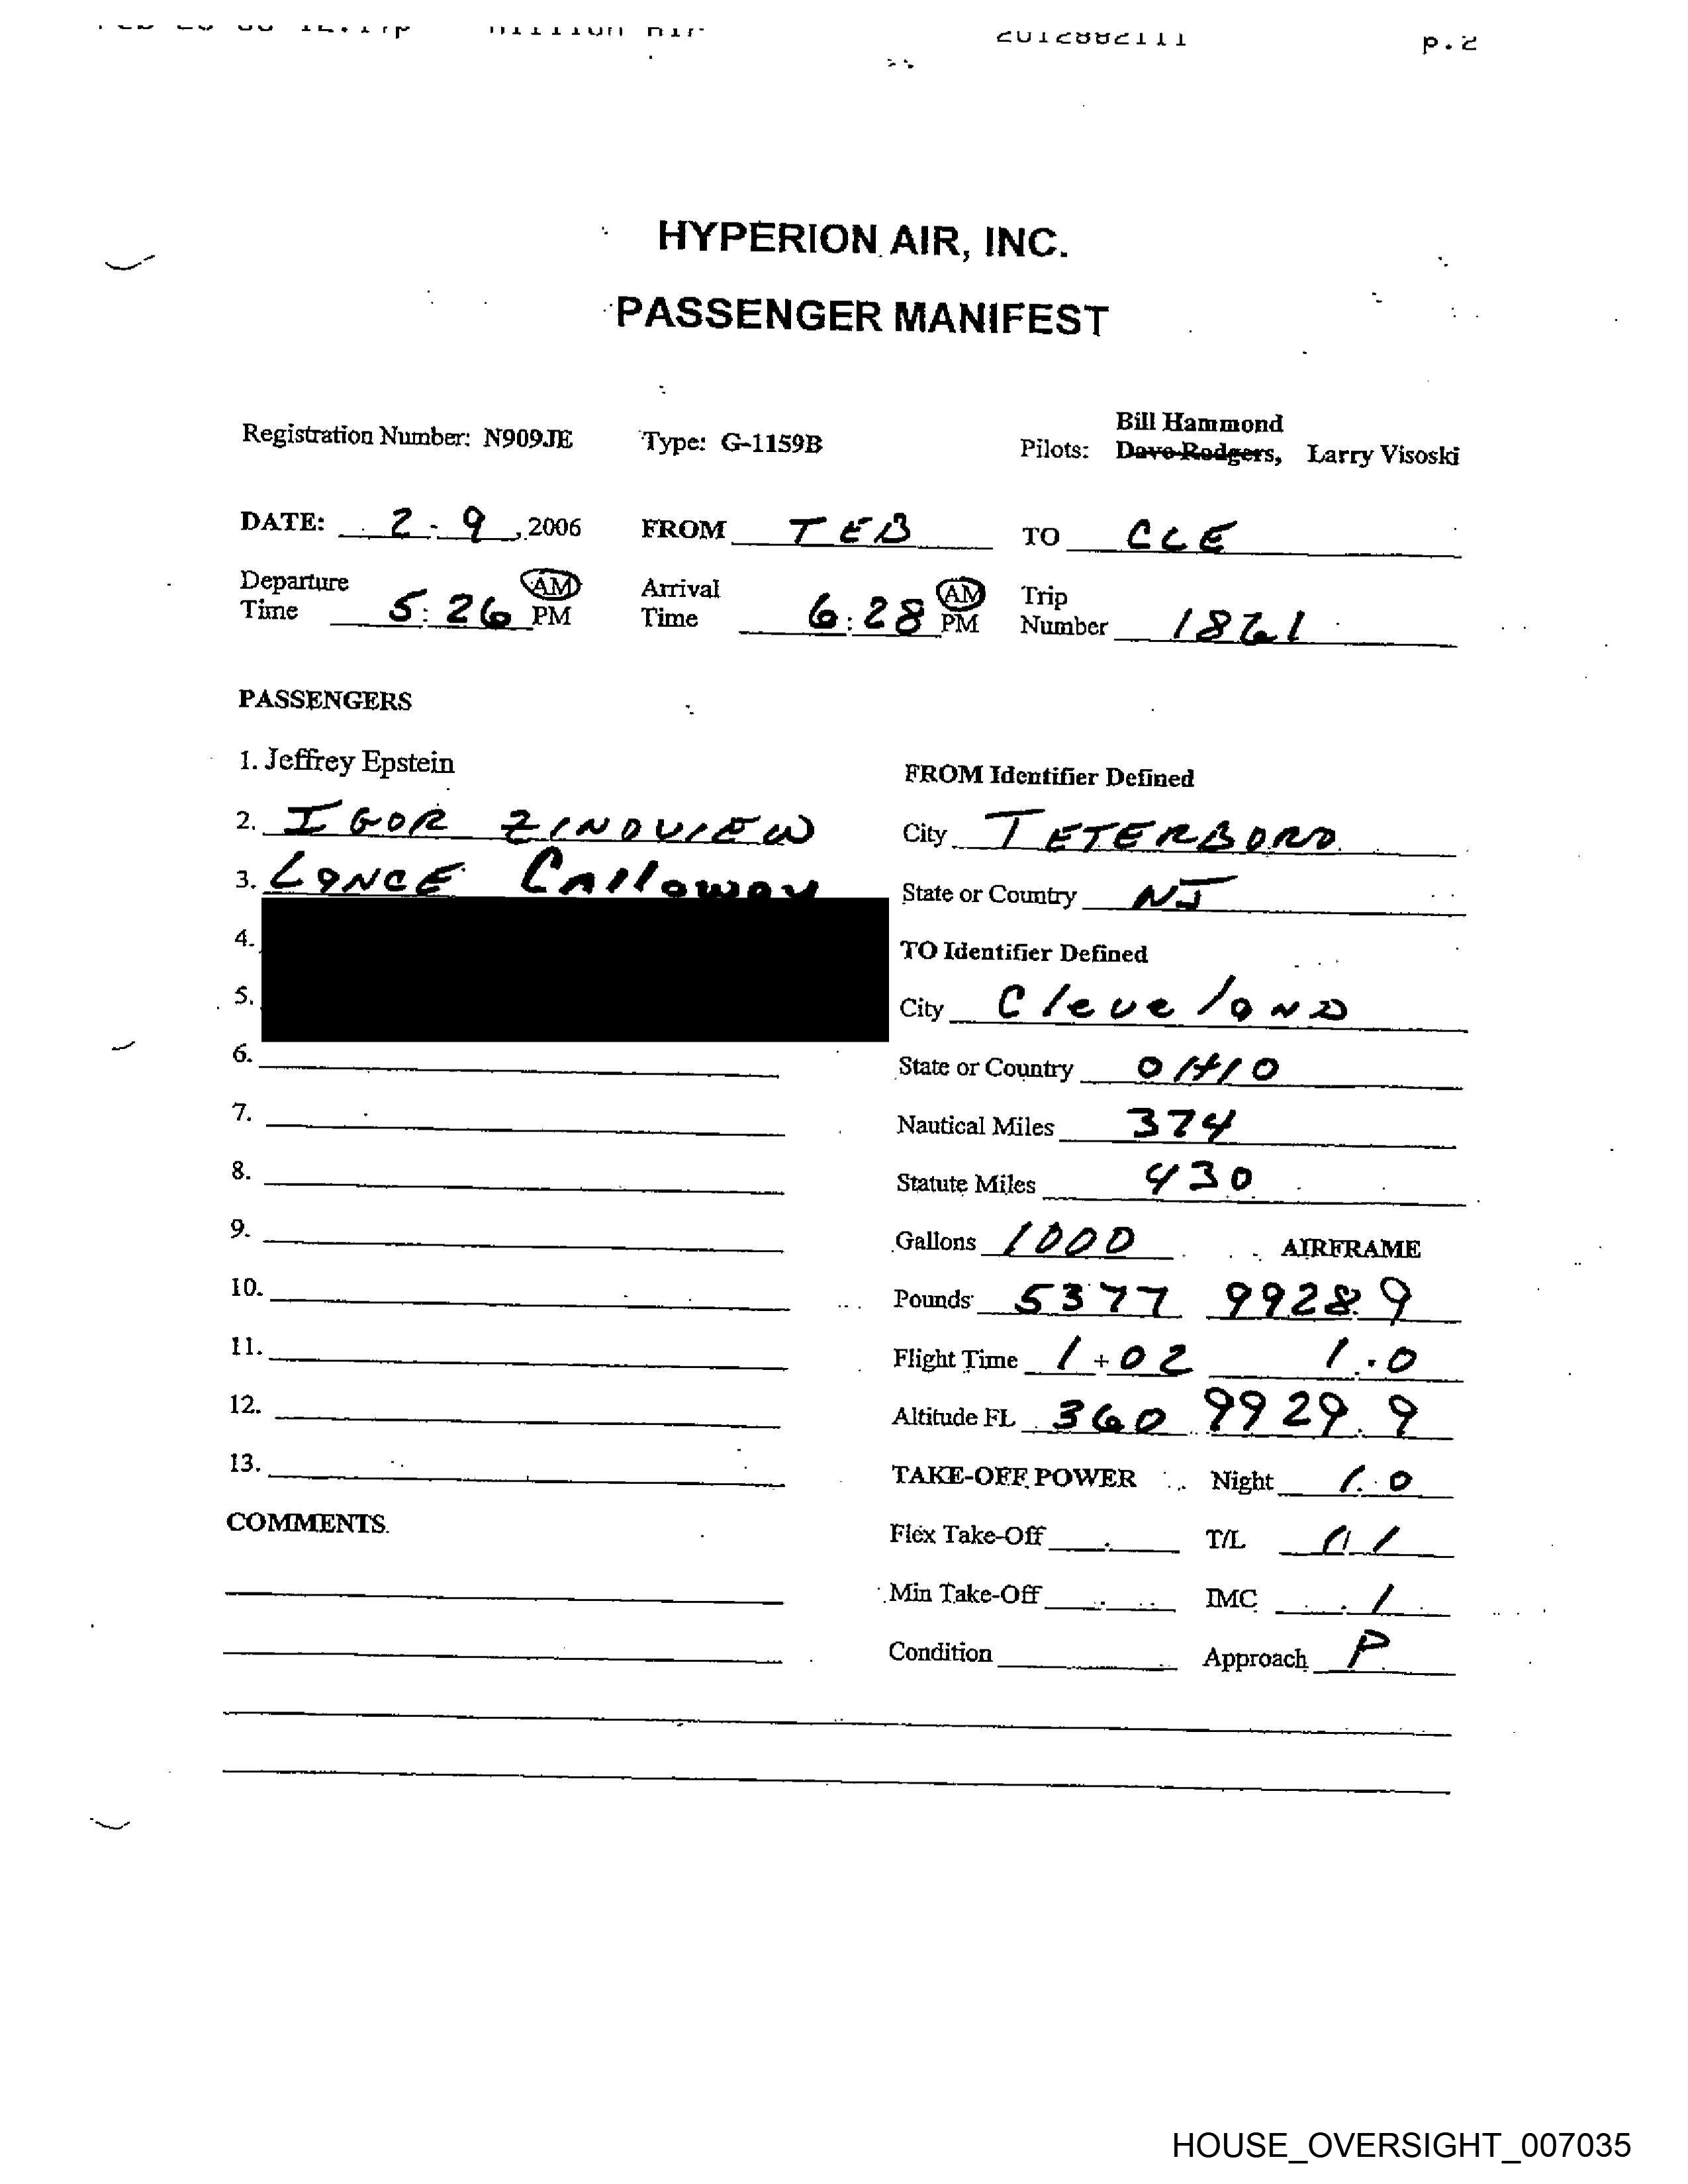 2012882111 p.2
HYPERION AIR, INC.
PASSENGER MANIFEST
Registration Number: N909JE Type: G-1159B Pilots: Bill Hammond
Dave Rodgers, Larry Visoski
DATE: 2-9, 2006 FROM TEB TO CLE
Departure Time 5:26 AM PM Arrival Time 6:28 AM PM Trip Number 1861
PASSENGERS
1. Jeffrey Epstein
2. IGOR ZINOVIEW
3. LANCE Calloway
4.
5.
6.
7.
8.
9.
10.
11.
12.
13.
COMMENTS
FROM Identifier Defined
City TETERBORO
State or Country NJ
TO Identifier Defined
City CleveLAND
State or Country OHIO
Nautical Miles 374
Statute Miles 430
Gallons 1000 AIRFRAME
Pounds 5377 9928.9
Flight Time 1+02 1.0
Altitude FL 360 9929.9
TAKE-OFF POWER Night 1.0
Flex Take-Off T/L
Min Take-Off IMC .1
Condition Approach P
HOUSE_OVERSIGHT_007035